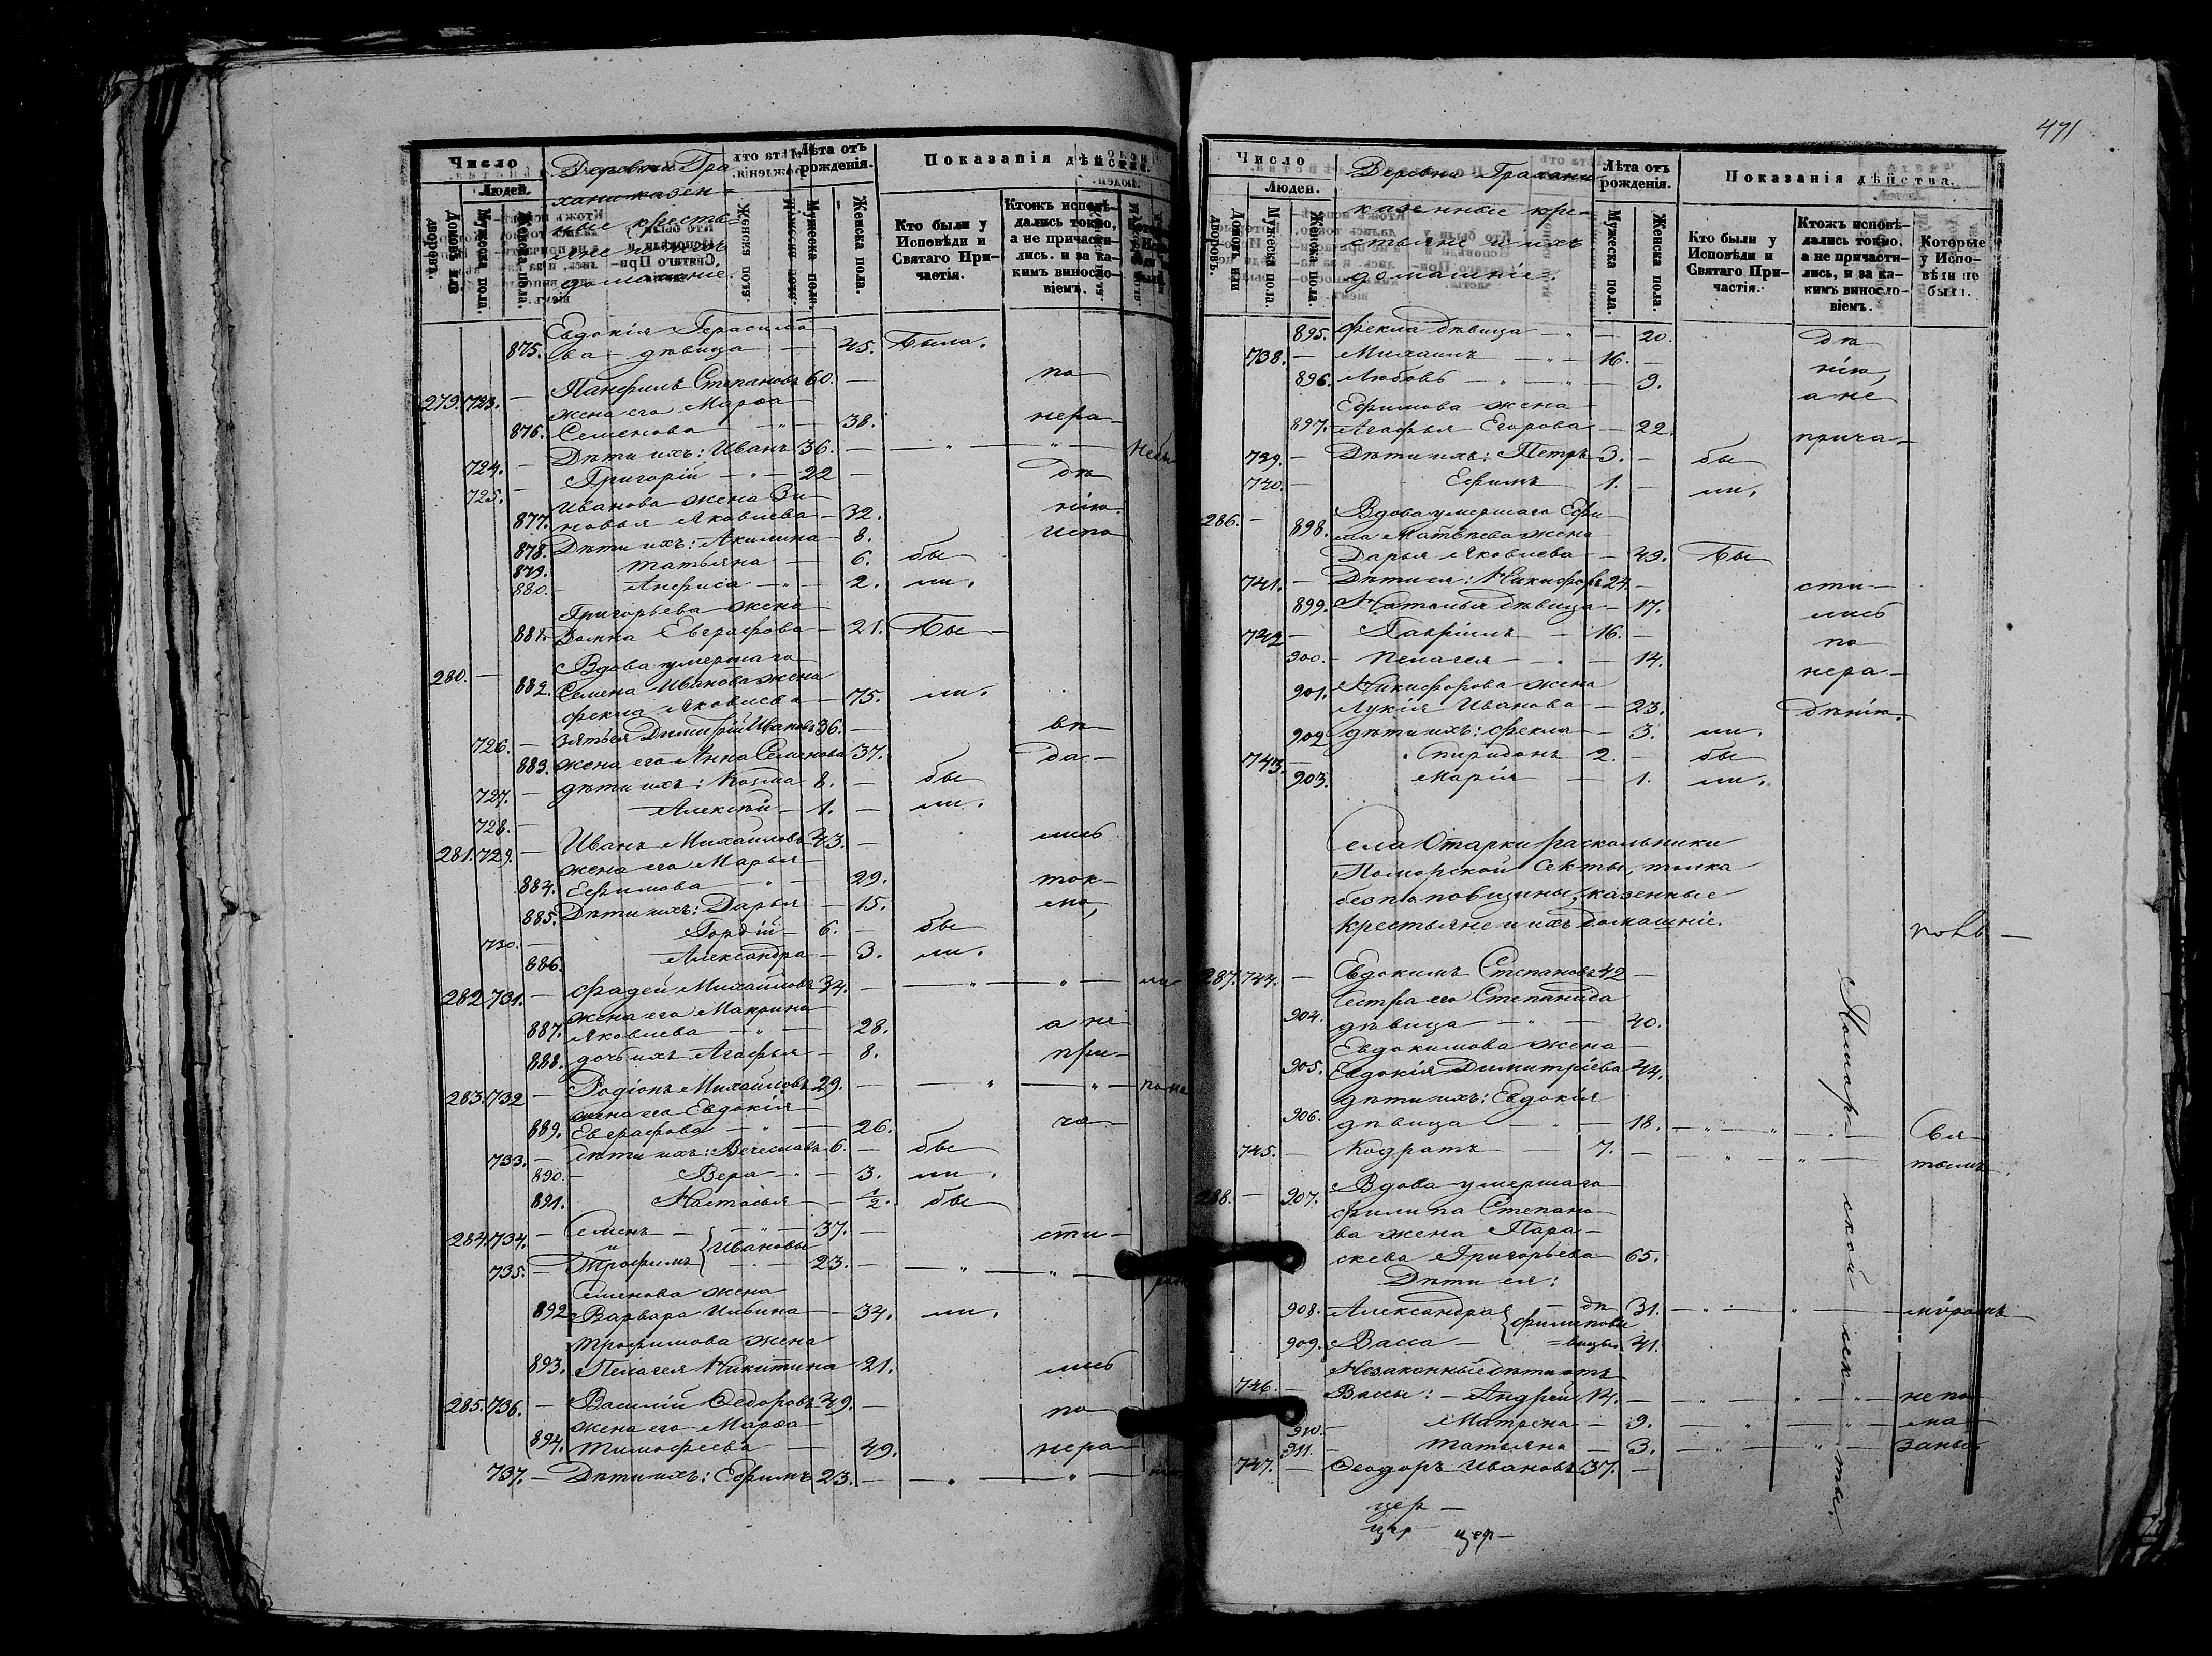 Число
Людей.
Домовъ или дворовъ.
Мужеска пола.
Женска пола.
Деревни Гра
хани казен-
ные кресть
яне и ихъ
домашніе.
Лѣта отъ рожденія.
Мужеска пола.
Женска пола.
Показанія дѣйства.
Кто были у Исповѣди и Святаго Причастія.
Ктожъ исповѣдались токмо, а не причастились, и за какимъ винословіемъ.
Евдокія Герасимо
875. ва дѣвица — 45. Была.
279. 723. — Панфилъ Степановъ 60. — по
жена его Марѳа
876. Семенова — " — 38. нера-
724. — Дѣти ихъ: Иванъ 36. — " — " — Небы
725. — Григорій — " — 22 — дѣ
Иванова жена Зи-
877. новья Яковлева — 32. нію.
878. Дѣти ихъ: Акилина — 8. испо
879. Татьяна — 6. бы
880. — Анфиса — " — 2. ли.
Григорьева жена
881. Домна Евграфова — 21. Бы-
280. — Вдова умершаго
882. Семена Иванова жена
Фекла Яковлева — 75. ли.
726. — Зять ея Димитрій Ивановъ 36. — вѣ
883. жена его Анна Семенова 37. да-
727. — дѣти ихъ: Козма 8. — бы
728. — Алексѣй — 1. — ли.
281. 729. — Иванъ Михайловъ 43. — лись
жена его Марья
884. Ефимова — " — 29. ток-
885. Дѣти ихъ: Дарья — 15. мо,
730. — Гордій — 6. — бы
886. Александра — 3. ли.
282. 731. — Фадей Михайловъ 34. — " — " — ли
жена его Макрина
887. Яковлева — " — 28. а не
888. дочь ихъ Агафья — 8. при-
283. 732 — Родіонъ Михайловъ 29. — " — " — по не
жена его Евдокія
889. Евграфова — " — 26. ча-
733. — дѣти ихъ: Вячеславъ 6. — бы
890. — Вера — " — 3. ли.
891. Настасья — 1/2. бы
284. 734. — Семенъ — " — 37. — сти-
и } Ивановы
735. — Трофимъ — " — 23. — " — " —
Семенова жена
892 Варвара Ильина — 34. ли.
Трофимова жена
893. Пелагея Никитина 21. лись
285. 736. — Василій Ѳедоровъ 49. — по
жена его Марѳа
894. Тимофеева — 49. нера-
737. — Дѣти ихъ: Ефимъ 23. — " — " —
471
Число
Людей.
Домовъ или дворовъ.
Мужеска пола.
Женска пола.
Деревни Грахани
казенные кре-
стьяне и ихъ
домашніе.
Лѣта отъ рожденія.
Мужеска пола.
Женска пола.
Показанія дѣйства.
Кто были у Исповѣди и Святаго Причастія.
Ктожъ исповѣдались токмо, а не причастились, и за какимъ винословіемъ.
Которые у Исповѣди не были.
895. Фекла дѣвица — " — 20. дѣ
738. — Михаилъ — " — 16. — нію,
896. Любовь — " — " — 9. а не
Ефимова жена
897. Агафья Егорова — 22. прича-
739. — Дѣти ихъ: Петръ 3. — бы
740. — Ефимъ 1. — ли.
286. — Вдова умершаго Ефи-
898. ма Матвѣева жена
Дарья Яковлева — 49. Бы
741. — Дѣти ея: Никифоръ 24. — сти-
899. Наталья дѣвица — 17. лись
742 — Гавріилъ — 16. — по
900. — Пелагея — " — 14. нера-
901. Никифорова жена
Лукія Иванова — 23. дѣнію.
902 дѣти ихъ: Фекла — 3. ли.
743. — Спиридонъ 2. — бы
903. Марія — 1. ли.
Села Отарки раскольники
Поморской Секты, толка
безпоповщины, казенные
крестьяне и ихъ домашніе.
287. 744. — Евдокимъ Степановъ 42 —
Сестра его Степанида
904. дѣвица — " — 40.
Евдокимова жена
905. Евдокія Димитріева 44.
дѣти ихъ: Евдокія
906. дѣвица — " — 18. — " — " — " — Свя-
745. — Кодратъ — 7. — " — " — тымъ
288. — 907. Вдова умершаго
Филипа Степано-
ва жена Пара-
скева Григорьева 65.
Дѣти ея:
908. Александра } Филиповы дѣ 31. — " — " — мѵромъ
909. Васса — =вицы 41.
Незаконные дѣти отъ
746. — Вассы: — Андрей 14. — " — " — " — не по-
910. — Матрена — 9. — " — " — ма-
911. — Татьяна — 3. — " — " — заны
747. — Ѳеодоръ Ивановъ 37. —
Поморской секты.
цер —
цер — цер —